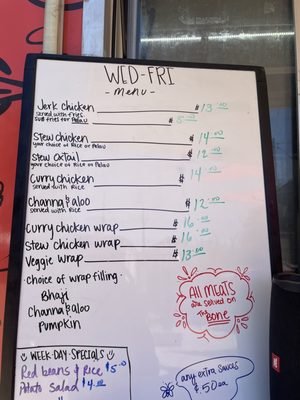 WED-FRI
-menu-
Jerk chicken $13.00
served with fries
sub fries for Pelau $5.00
Stew chicken $14.00
your choice of Rice or Pelau
Stew Oxtail $12.00
your choice of Rice or Pelau
Curry chicken $14.00
served with Rice
Channa & aloo $12.00
served with Rice
Curry chicken wrap $16.00
Stew chicken wrap $16.00
Veggie wrap $13.00
·choice of wrap filling·
Bhaji
Channa & aloo
Pumpkin
All MEATS
are served on
The
BONE
WEEK-DAY-SPECIALS
Red beans & Rice $5.0
Potato Salad $4.00
any extra sauces
$.50 ea